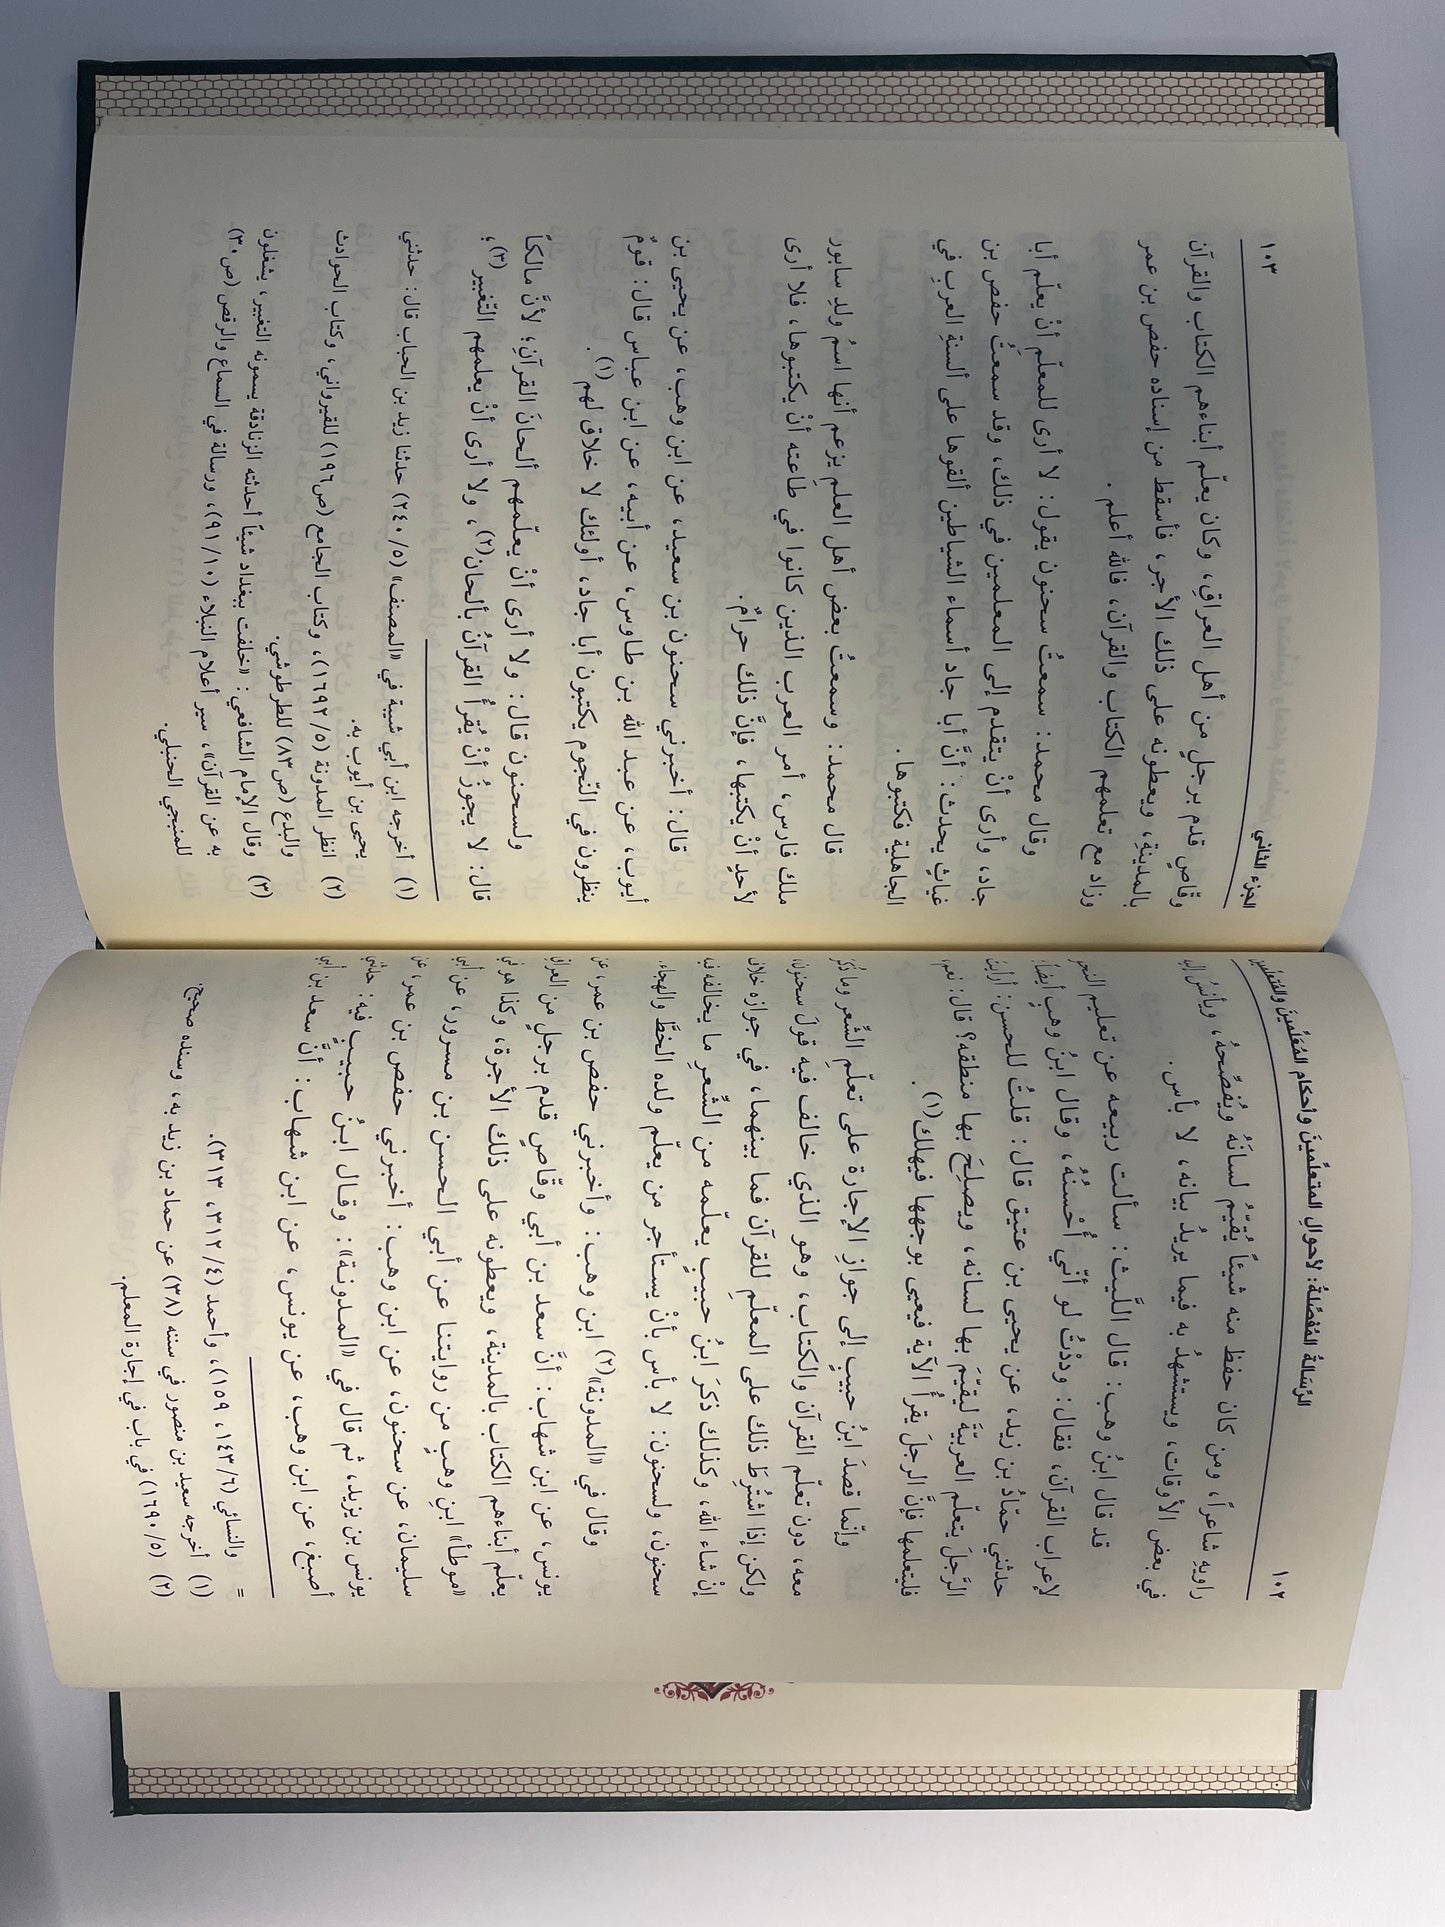 ١٠٢
الرِّسَالةُ المُفَصَّلةُ: لأحوالِ المتعلِّمينَ وأحكامِ المُعَلِّمينَ والمُتَعَلِّمينَ
راويهِ شاعراً، ومن كان حفظ منه شيئاً يُقيِّمُ لسانَهُ ويُفصِّحهُ، ويأنسُ
في بعض الأوقات، ويستشهدُ به فيما يريدُ بيانه، لا بأس.
قد قال ابنُ وهب: قال اللَّيث: سألت ربيعه عن تعليم النحو
لإعراب القرآن، فقال: وددْتُ لو أنّي أُحْسنُهُ، وقال ابنُ وهب أيضاً:
حدثني حمّادُ بن زيد، عن يحيى بن عتيق قال: قلتُ للحسن: أرأيت
الرَّجلَ يتعلّم العربيّةَ ليقيِّمَ بها لسانه، ويصلِحَ بها منطقه؟ قال: نعم،
فليتعلمها فإنَّ الرجلَ يقرأُ الآية فيعيى بوجهها فيهلك(١).
وإنّما قصدَ ابنُ حبيبٍ إلى جوازِ الإجارة على تعلّمِ الشِّعر وما ذُكِرَ
معه، دون تعلّم القرآن والكتاب، وهو الذي خالف فيه قولَ سحنون،
ولكن إذا اشتُرِطَ ذلك على المعلّمِ للقرآن فما بينهما، في جوازه خلاف
إنْ شاء الله، وكذلك ذكرَ ابنُ حبيبٍ يعلّمه من الشِّعرِ ما يخالفه فيه
سحنون، ولسحنون: لا بأس بأنْ يستأجر من يعلّم ولده الخطَّ والهجاء.
وقال في «المدونة»(٢) ابن وهب: وأخبرني حفص بن عمر، عن
يونس، عن ابن شهاب: أنَّ سعد بن أبي وقّاصٍ قدم برجلٍ من العراق
يعلّم أبناءهم الكتاب بالمدينة، ويعطونه على ذلك الأجرة، وكذا هو في
«موطأ» ابنِ وهبٍ من روايتنا عن أبي الحسن بن مسرور، عن أبي
سليمان، عن سحنون، عن ابن وهب: أخبرني حفص بن عمر، عن
يونس بن يزيد، ثم قال في «المدونة»: وقال ابنُ حبيبٍ فيه: حدثني
أصبغ، عن ابن وهب، عن يونس، عن ابن شهاب: أنَّ سعد بن أبي
= والنسائي (١٤٣/٦، ١٥٩)، وأحمد (٣١٢/٤، ٣١٣).
(١) أخرجه سعيد بن منصور في سننه (٣٨) عن حماد بن زيد به، وسنده صحيح.
(٢) (١٦٩٠/٥) في باب في إجارة المعلم.
الجزء الثاني
١٠٣
وقّاصٍ قدم برجلٍ من أهل العراقِ، وكان يعلّم أبناءهم الكتاب والقرآن
بالمدينةِ، ويعطونه على ذلك الأجر، فأسقط من إسناده حفص بن عمر
وزاد مع تعلمهم الكتاب والقرآن، فالله أعلم.
وقال محمد: سمعتُ سحنون يقول: لا أرى للمعلّم أنْ يعلّم أبا
جاد، وأرى أنْ يتقدم إلى المعلمين في ذلك، وقد سمعتُ حفص بن
غياثٍ يحدث: أنَّ أبا جاد أسماء الشياطين ألقوها على ألسنةِ العربِ في
الجاهلية فكتبوها.
قال محمد: وسمعتُ بعض أهل العلمِ يزعم أنها اسمُ ولدِ سابور
ملك فارس، أمر العرب الذين كانوا في طاعته أنْ يكتبوها، فلا أرى
لأحدٍ أنْ يكتبها، فإنَّ ذلك حرامٌ.
قال: أخبرني سحنون بن سعيد، عن ابن وهب، عن يحيى بن
أيوب، عن عبد الله بن طاوس، عن أبيه، عن ابن عباس قال: قومٌ
ينظرون في النّجوم يكتبون أبا جاد، أولئك لا خلاق لهم(١).
ولسحنون قال: ولا أرى أنْ يعلّمهم ألحانَ القرآنِ؛ لأنَّ مالكاً
قال: لا يجوزُ أنْ يُقرأُ القرآنُ بألحان(٢)، ولا أرى أنْ يعلمهم التّغبير(٣)؛
(١) أخرجه ابن أبي شيبة في «المصنف» (٢٤٠/٥) حدثنا زيد بن الحباب قال: حدثني
يحيى بن أيوب به.
(٢) انظر المدونة (١٦٩٢/٥)، وكتاب الجامع (ص١٩٦) للقيرواني، وكتاب الحوادث
والبدع (ص٨٣) للطرطوشي.
(٣) وقال الإمام الشافعي: «خلفت ببغداد شيئاً أحدثته الزنادقة يسمونه التغبير، يشغلون
به عن القرآن»، سير أعلام النبلاء (٩١/١٠)، ورسالة في السماع والرقص (ص٣٠)
للمنبجي الحنبلي.